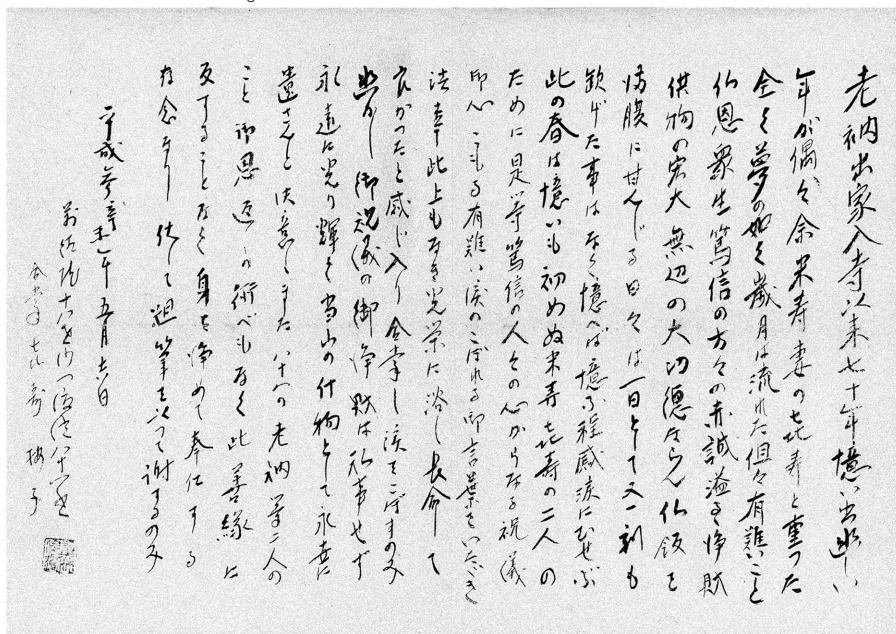 老衲出家入寺以来七十年憶い出遙しい
年が偶々余米寿妻の喜寿と重った
全く夢の如く歳月は流れた但々有難いこと
仏恩衆生篤信の方々の赤誠溢る浄財
供物の宏大無辺の大功徳ならん仏飯を
満腹に甘んじる日々は一日とて又一刻も
欠げた事はなく憶へば憶ふ程感涙にむせぶ
此の春は憶いも初めぬ米寿喜寿の二人の
ために是等篤信の人々の心からなる祝儀
印心こもる有難い涙のこぼれる御言葉をいただき
法幸此上もなき光栄に浴し長命して
良かったと感じ入り合掌し涙をこぼすのみ
御祝儀の御浄財は私事せず
永遠に光り輝く当山の什物として永世に
遺さんと決意しまた八十八の老衲等二人の
こと御恩返しの術べもなく此善縁に
反することなく身を浄めて奉仕する
存念なり 伏して筆を以って謝するのみ
平成参辛未年五月吉日
八十八
喜寿 梅子